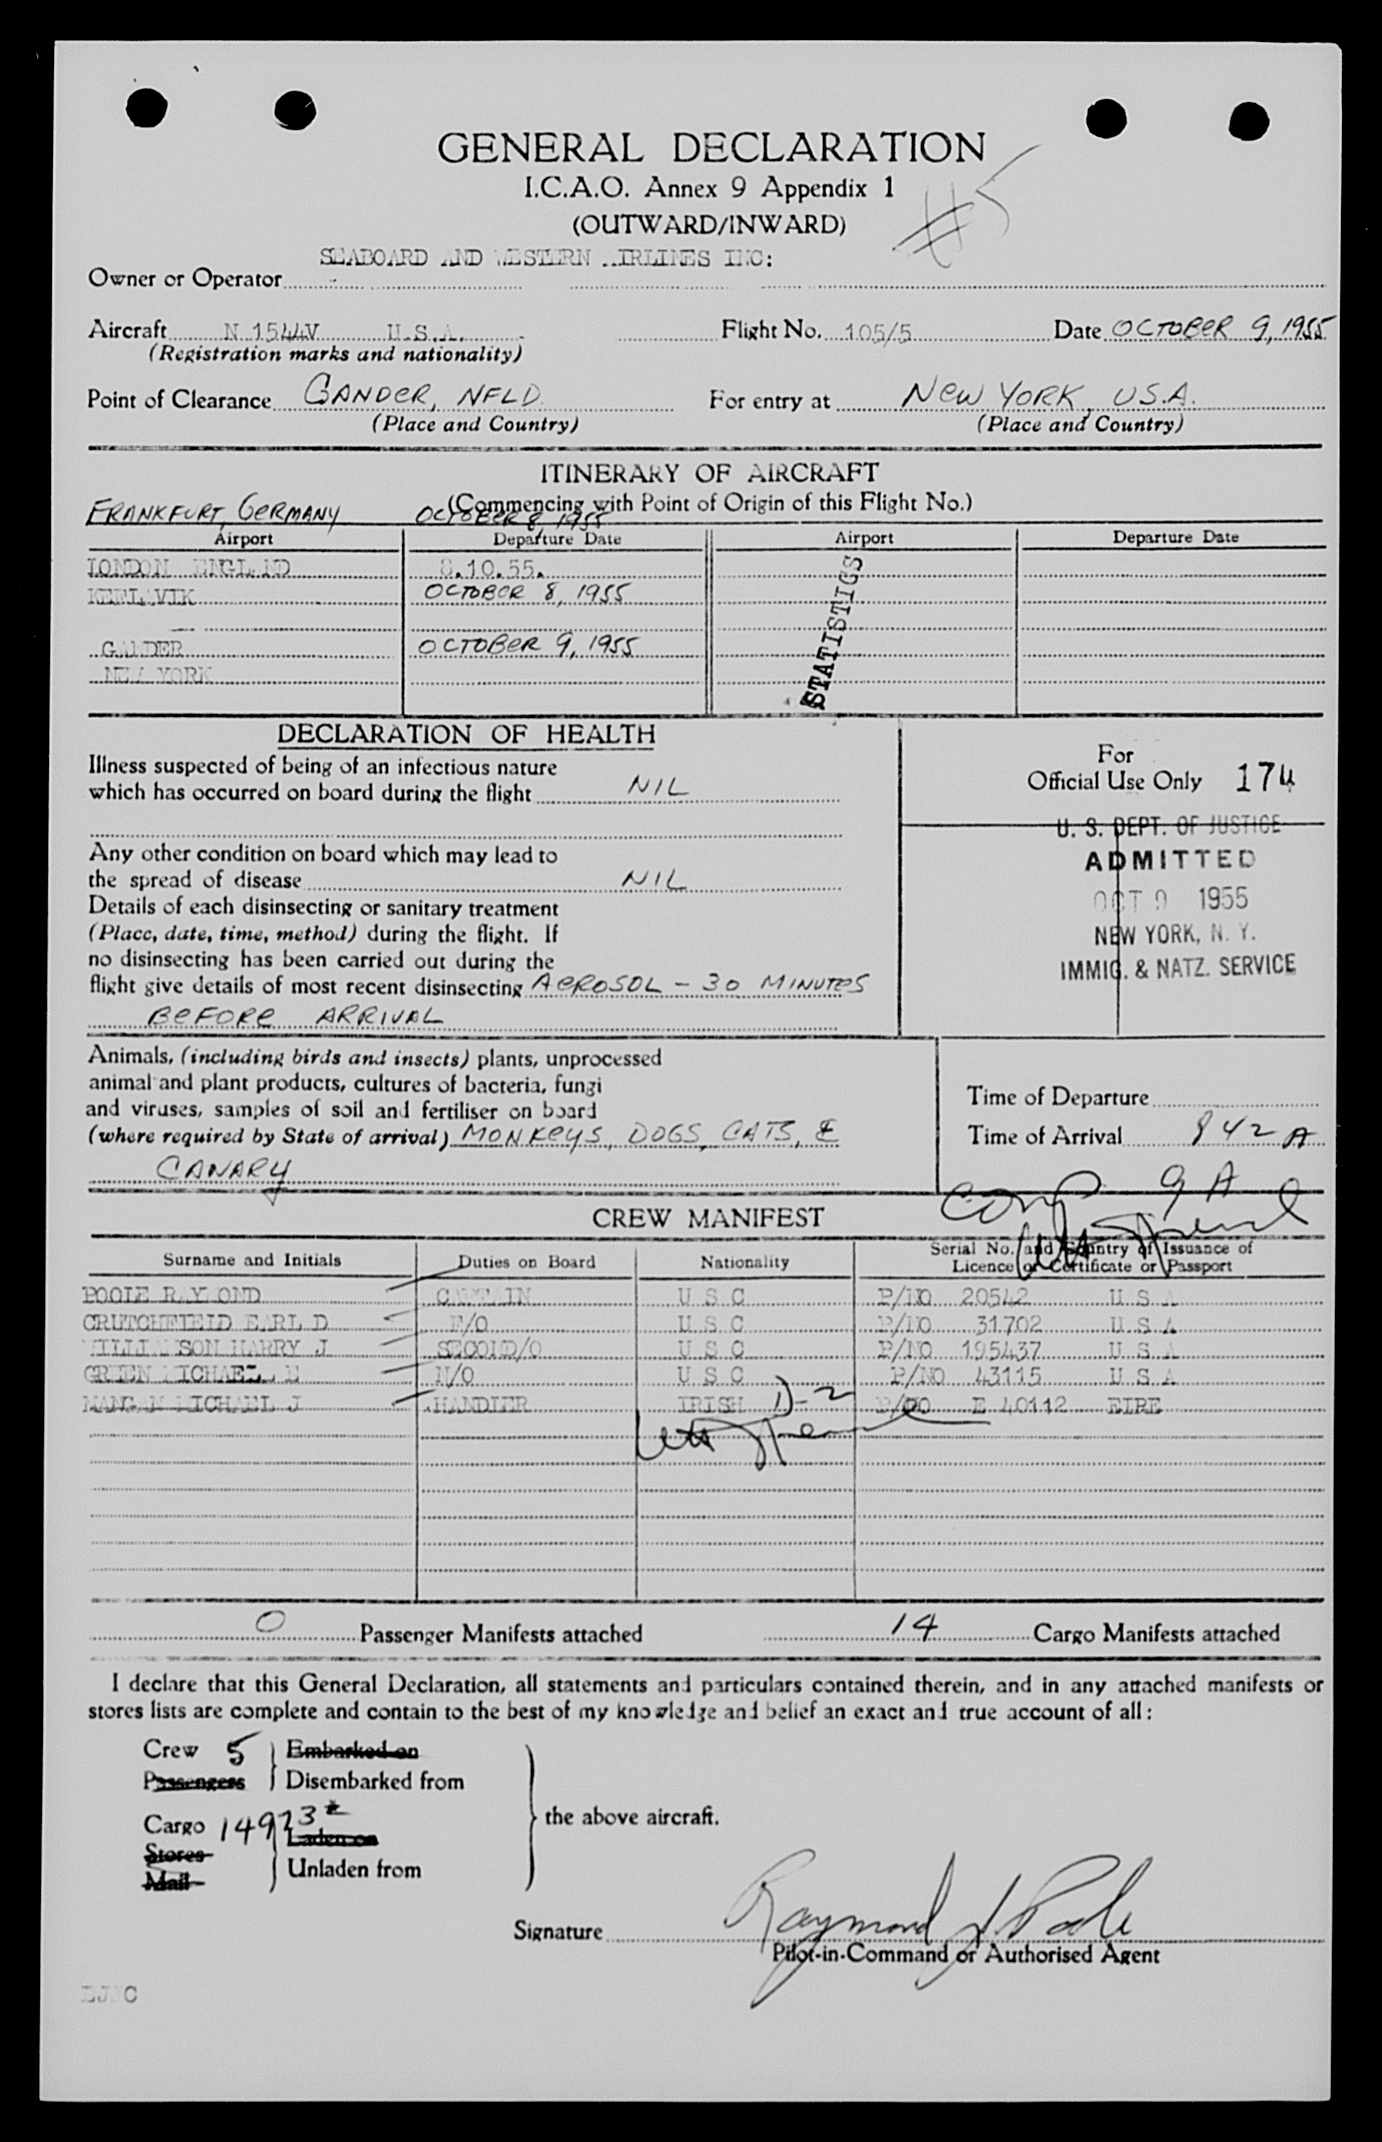 GENERAL DECLARATION
I.C.A.O. Annex 9 Appendix 1
#5
(OUTWARD/INWARD)
SEABOARD AND WESTERN AIRLINES INC:
Owner or Operator
Aircraft N 1544V U.S.A. Flight No. 105/5 Date OCTOBER 9, 1955
(Registration marks and nationality)
Point of Clearance GANDER, NFLD. For entry at NEW YORK, U.S.A.
(Place and Country) (Place and Country)
ITINERARY OF AIRCRAFT
(Commencing with Point of Origin of this Flight No.)
FRANKFURT, GERMANY OCTOBER 8, 1955
Airport Departure Date Airport Departure Date
LONDON ENGLAND 8.10.55.
KEFLAVIK OCTOBER 8, 1955
GANDER OCTOBER 9, 1955
NEW YORK
STATISTICS
DECLARATION OF HEALTH
Illness suspected of being of an infectious nature
which has occurred on board during the flight NIL
Any other condition on board which may lead to
the spread of disease NIL
Details of each disinsecting or sanitary treatment
(Place, date, time, method) during the flight. If
no disinsecting has been carried out during the
flight give details of most recent disinsecting AEROSOL - 30 MINUTES
BEFORE ARRIVAL
For
Official Use Only 174
U. S. DEPT. OF JUSTICE
ADMITTED
OCT 9 1955
NEW YORK, N. Y.
IMMIG. & NATZ. SERVICE
Animals, (including birds and insects) plants, unprocessed
animal and plant products, cultures of bacteria, fungi
and viruses, samples of soil and fertiliser on board
(where required by State of arrival) MONKEYS, DOGS, CATS, &
CANARY
Time of Departure
Time of Arrival 842 A
9 A
CREW MANIFEST
Surname and Initials Duties on Board Nationality Serial No. and Country of Issuance of
Licence or Certificate or Passport
POOLE RAYMOND CAPTAIN U S C P/NO 20542 U S A
CRUTCHFIELD EARL D F/O U S C P/NO 31702 U S A
WILLIAMSON HARRY J SECOND/O U S C P/NO 195437 U S A
GREEN MICHAEL E N/O U S C P/NO 43115 U S A
MANGAN MICHAEL J HANDLER IRISH D-2 P/NO E 40112 EIRE
0 Passenger Manifests attached 14 Cargo Manifests attached
I declare that this General Declaration, all statements and particulars contained therein, and in any attached manifests or
stores lists are complete and contain to the best of my knowledge and belief an exact and true account of all:
Crew 5 Embarked on
Passengers Disembarked from
the above aircraft.
Cargo 14973# Laden on
Stores
Mail Unladen from
Signature Raymond J. Poole
Pilot-in-Command or Authorised Agent